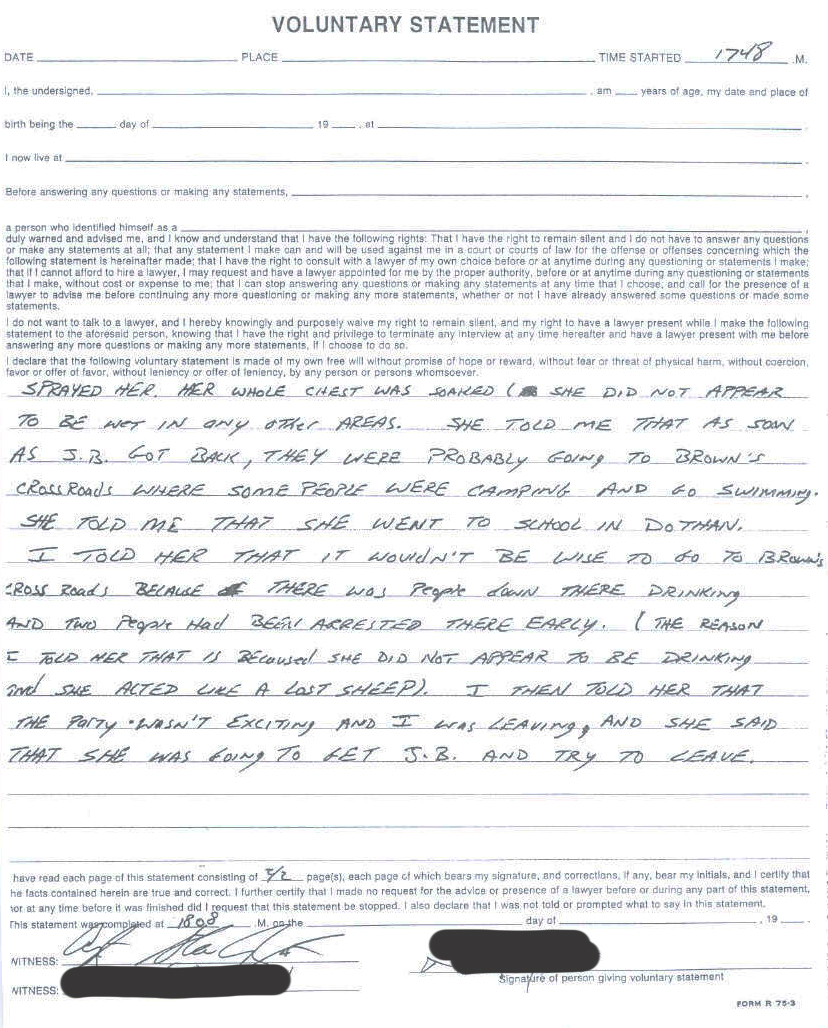 VOLUNTARY STATEMENT
DATE PLACE TIME STARTED 1748 .M.
I, the undersigned, , am years of age, my date and place of
birth being the day of 19 , at
I now live at
Before answering any questions or making any statements, ,
a person who identified himself as a ,
duly warned and advised me, and I know and understand that I have the following rights: That I have the right to remain silent and I do not have to answer any questions
or make any statements at all; that any statement I make can and will be used against me in a court or courts of law for the offense or offenses concerning which the
following statement is hereinafter made; that I have the right to consult with a lawyer of my own choice before or at anytime during any questioning or statements I make;
that if I cannot afford to hire a lawyer, I may request and have a lawyer appointed for me by the proper authority, before or at anytime during any questioning or statements
that I make, without cost or expense to me; that I can stop answering any questions or making any statements at any time that I choose, and call for the presence of a
lawyer to advise me before continuing any more questioning or making any more statements, whether or not I have already answered some questions or made some
statements.
I do not want to talk to a lawyer, and I hereby knowingly and purposely waive my right to remain silent, and my right to have a lawyer present while I make the following
statement to the aforesaid person, knowing that I have the right and privilege to terminate any interview at any time hereafter and have a lawyer present with me before
answering any more questions or making any more statements, if I choose to do so.
I declare that the following voluntary statement is made of my own free will without promise of hope or reward, without fear or threat of physical harm, without coercion,
favor or offer of favor, without leniency or offer of leniency, by any person or persons whomsoever.
SPRAYED HER. HER WHOLE CHEST WAS SOAKED ( SHE DID NOT APPEAR
TO BE WET IN any other AREAS. SHE TOLD ME THAT AS SOON
AS J.B. GOT BACK, THEY WERE PROBABLY GOING TO BROWN'S
CROSSROADS WHERE SOME PEOPLE WERE CAMPING AND GO SWIMMING.
SHE TOLD ME THAT SHE WENT TO SCHOOL IN DOTHAN.
I TOLD HER THAT IT WOULDN'T BE WISE TO GO TO BROWN'S
CROSS Roads BECAUSE THERE was People down THERE DRINKING
AND TWO People Had BEEN ARRESTED THERE EARLY. ( THE REASON
I TOLD HER THAT IS BEcaused SHE DID NOT APPEAR TO BE DRINKING
and SHE ACTED LIKE A LOST SHEEP). I THEN TOLD HER THAT
THE PARTY WASN'T EXCITING AND I WAS LEAVING, AND SHE SAID
THAT SHE WAS GOING TO GET J.B. AND TRY TO LEAVE.
have read each page of this statement consisting of page(s), each page of which bears my signature, and corrections, if any, bear my initials, and I certify that
he facts contained herein are true and correct. I further certify that I made no request for the advice or presence of a lawyer before or during any part of this statement,
nor at any time before it was finished did I request that this statement be stopped. I also declare that I was not told or prompted what to say in this statement.
This statement was completed at 1808 .M. on the day of , 19 .
WITNESS:
WITNESS:
Signature of person giving voluntary statement
FORM R 75-3